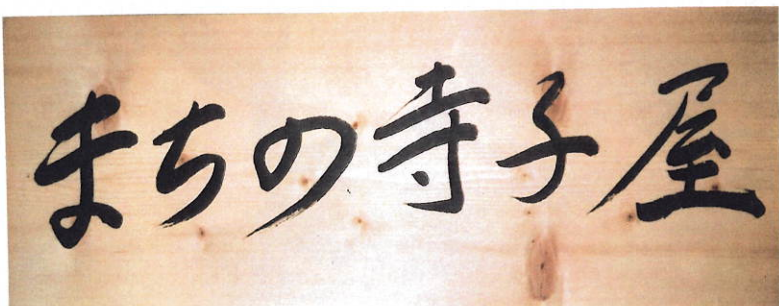 まちの寺子屋